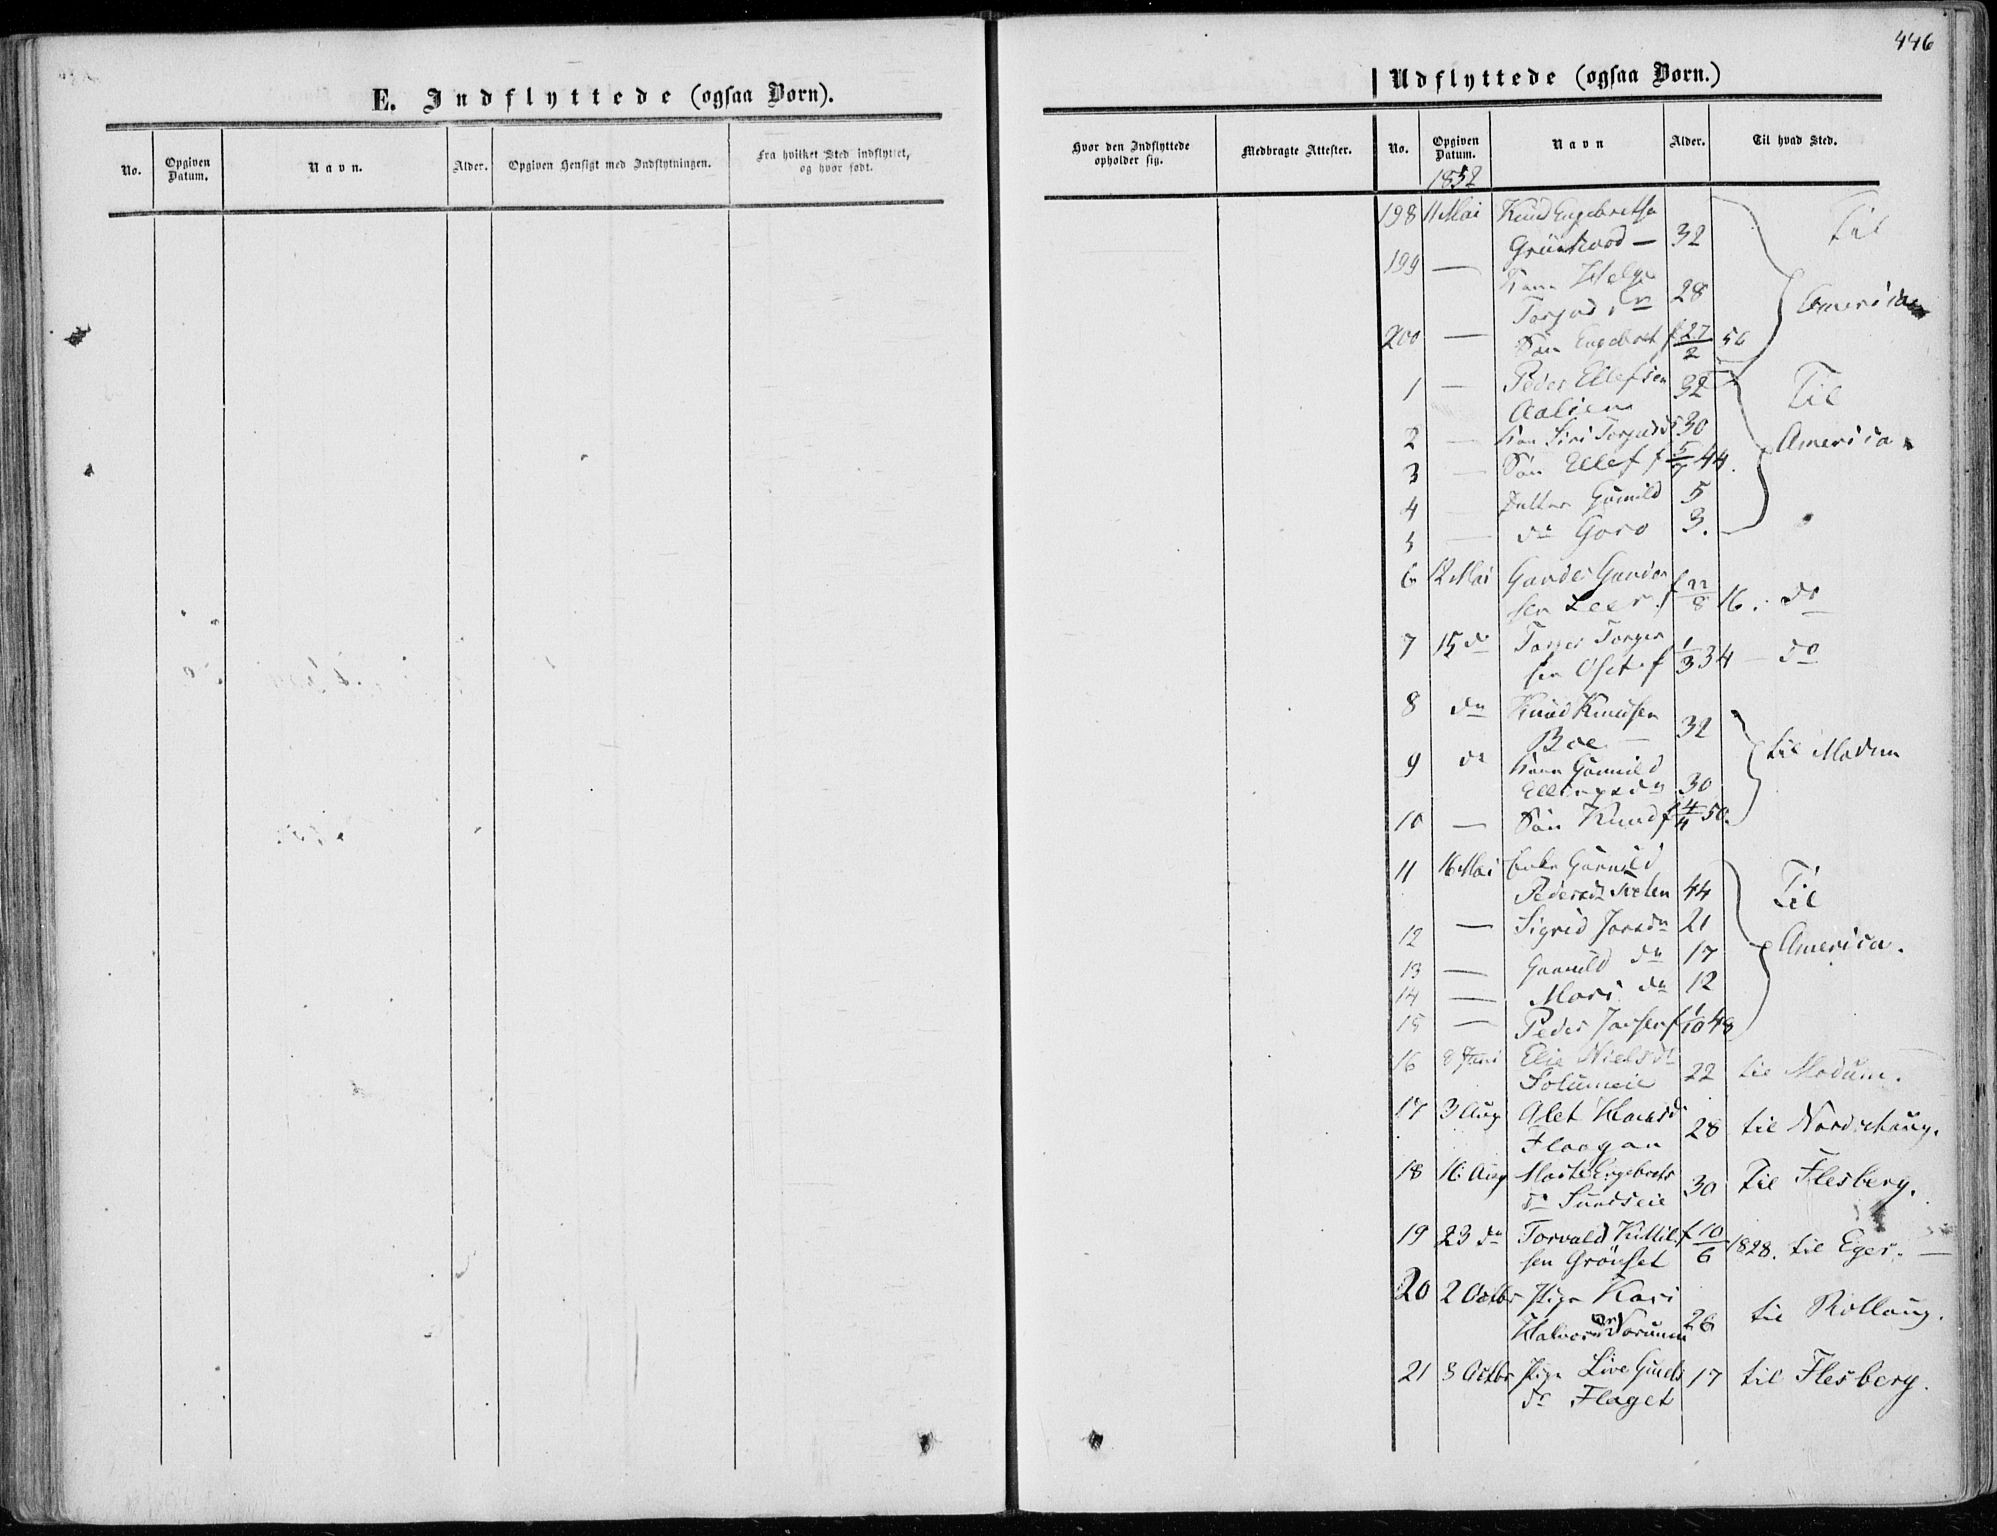 446
E. Indflyttede (ogsaa Børn).
No.
Opgiven Datum.
Navn.
Alder.
Opgiven Hensigt med Indflytningen.
Fra hvilket Sted indflyttet, og hvor født.
Udflyttede (ogsaa Børn.)
Hvor den Indflyttede opholder sig.
Medbragte Attester.
No.
Opgiven Datum.
Navn
Alder.
Til hvad Sted.
1852
198 11 Mai Knud Engebretsn
32 Til
199 — Kone Helge
Torgrsdn 28 America
200 — Søn Engebret f 27/2 50
1 — Peder Ellefsen 32 Til
Aalien
2 — Kone Siri 30 America.
3 — Søn Ellef f 5/7 44.
4 — Datter Gunild 5
5 — do Goro 3.
6 12 Mai Gunder Gunder
sen f 22/8 16. do
7 15 do Torger Torger
sen Oset f 1/3 34 — do
8 do Knud Knudsen
Boe — 32 til Modum
9 do Kone Gunild
Ellingsdn 30
10 — Søn Knud f 4/4 50.
11 16 Mai Enke Gunild
Pedersdn 44 Til
12 — Sigrid Jonsdn 21
America.
13 — Gunild dn 17
14 — Mari dn 12
15 — Peder Jonsen f 1/10 48
16 8 Juni Elie Nielsdn
Solumeie 22 til Modum.
17 3 Aug
Flaagan 28 til Nordrehaug.
18 16 Aug Marte Engebrets
dn Sundseie 30 Til Flesberg.
19 23 do Torvald Kittil
sen Grønset f 10/6 1828. til Eger. —
20 2 Octbr Pige Kari
Halvorsdn 26 til Rollaug.
21 3 Octbr Pige Live Gunds
dn Flaget 17 til Flesberg.